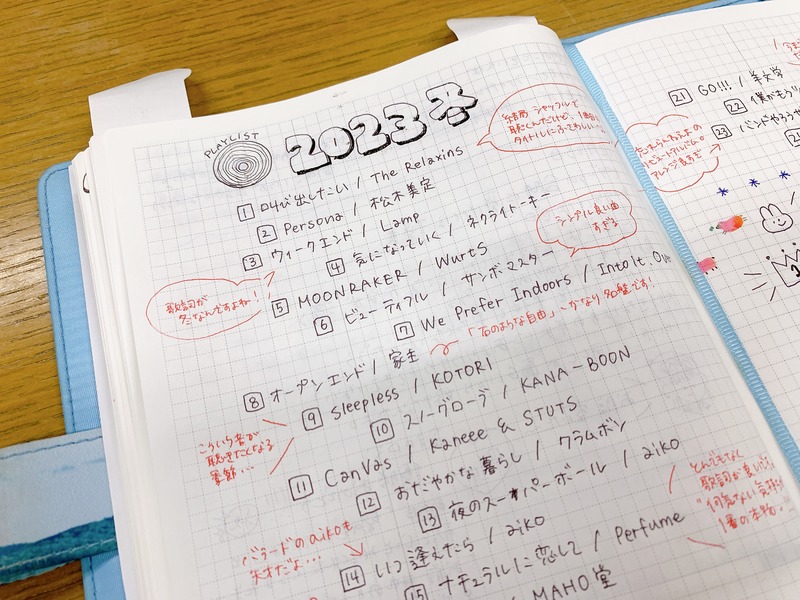 PLAYLIST
2023 冬
結局シャッフルで
聴くんだけど、1曲目は
タイトルにふさわしい…
1 叫び出したい / The Relaxins
2 Persona / 松木美定
3 ウィークエンド / Lamp
4 気になっていく / ネクライトーキー
シンプル良い曲
すぎる
5 MOONRAKER / WurtS
歌詞が
冬なんですよね!
6 ビューティフル / サンボマスター
7 We Prefer Indoors / Into It. Ov
「石のような自由」〜かなり名盤です!
8 オープンエンド / 家主
9 Sleepless / KOTORI
10 スノーグローブ / KANA-BOON
こういう音が
聴きたくなる
季節…
11 Canvas / Kaneee & STUTS
12 おだやかな暮らし / クラムボン
13 夜のスーパーボール / aiko
バラードのaikoも
天才だよ…
14 いつ逢えたら / aiko
とんでもなく
歌詞が良い
"何気ない気持ち
1番の本物
15 ナチュラルに恋して / Perfume
MAHO堂
21 GO!!! / 羊文学
22 僕がもう
23 バンドやろう
アレンジ良すぎ